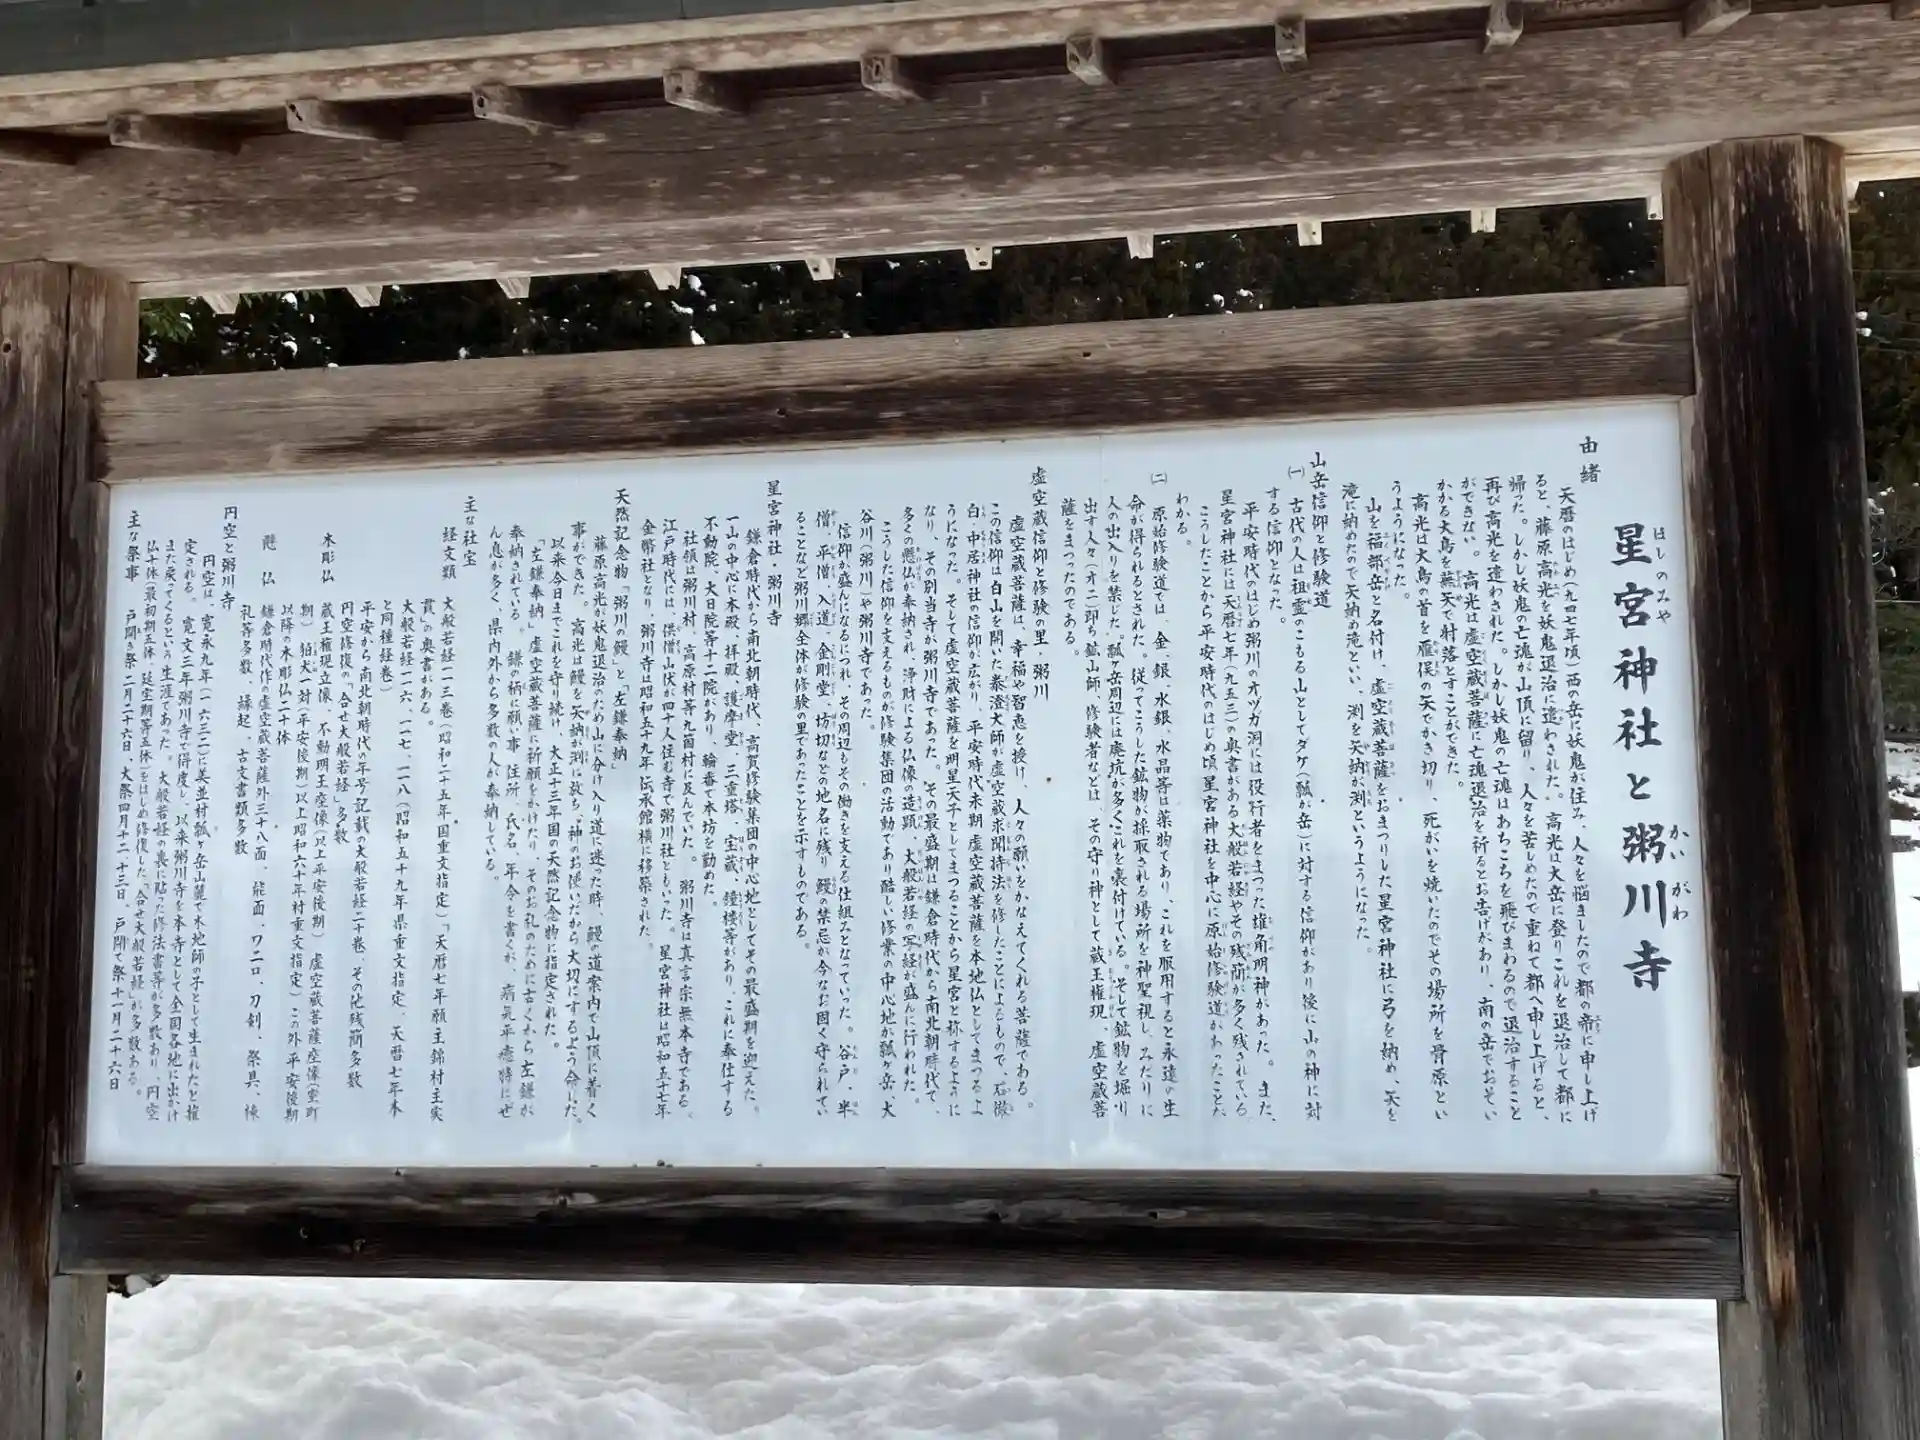 星宮神社と粥川寺
ほしのみや かいがわ
由緒
天暦のはじめ(九四七年頃)西の岳に妖鬼が住み、人々を悩ましたので都の帝に申し上げ
ると、藤原高光を妖鬼退治に遣わされた。高光は大岳に登りこれを退治して都に
帰った。しかし妖鬼の亡魂が山頂に留り、人々を苦しめたので重ねて都へ申し上げると、
再び高光を遣わされた。しかし妖鬼の亡魂はあちこちを飛びまわるので退治すること
ができない。高光は虚空蔵菩薩に亡魂退治を祈るとお告げがあり、南の岳でおそい
かかる大鳥を蕪矢で射落とすことができた。
高光は大鳥の首を雁俣の矢でかき切り、死がいを焼いたのでその場所を骨原とい
うようになった。
山を福部岳と名付け、虚空蔵菩薩をおまつりした星宮神社に弓を納め、矢を
滝に納めたので矢納め滝といい、渕を矢納が渕というようになった。
山岳信仰と修験道
㈠ 古代の人は祖霊のこもる山としてダケ(瓢が岳)に対する信仰があり後に山の神に対
する信仰となった。
平安時代のはじめ粥川のオツガ洞には役行者をまつった雄角明神があった。また、
星宮神社には天暦七年(九五三)の奥書がある大般若経やその残簡が多く残されている。
こうしたことから平安時代のはじめ頃星宮神社を中心に原始修験道があったことが
わかる。
㈡ 原始修験道では、金、銀、水銀、水晶等は薬物であり、これを服用すると永遠の生
命が得られるとされた。従ってこうした鉱物が採取される場所を神聖視し、みだりに
人の出入りを禁じた。瓢ヶ岳周辺には廃坑が多くこれを裏付けている。そして鉱物を堀り
出す人々(丹二)即ち鉱山師、修験者などは、その守り神として蔵王権現、虚空蔵菩
薩をまつったのである。
虚空蔵信仰と修験の里・粥川
虚空蔵菩薩は、幸福や智恵を授け、人々の願いをかなえてくれる菩薩である。
この信仰は白山を開いた泰澄大師が虚空蔵求聞持法を修したことによるもので、石徹
白・中居神社の信仰が広がり、平安時代末期虚空蔵菩薩を本地仏としてまつるよ
うになった。そして虚空蔵菩薩を明星天子としてまつることから星宮と称するように
なり、その別当寺が粥川寺であった。その最盛期は鎌倉時代から南北朝時代で、
多くの懸仏が奉納され、浄財による仏像の造顕、大般若経の写経が盛んに行われた。
こうした信仰を支えるものが修験集団の活動であり酷しい修業の中心地が瓢ヶ岳、大
谷川(粥川)や粥川寺であった。
信仰が盛んになるにつれ、その周辺もその働きを支える仕組みとなっていった。谷戸、半
僧、平僧、入道、金剛堂、坊切などの地名に残り鰻の禁忌が今なお固く守られてい
ることなど粥川郷全体が修験の里であったことを示すものである。
星宮神社・粥川寺
鎌倉時代から南北朝時代、高賀修験集団の中心地としてその最盛期を迎えた。
一山の中心に本殿、拝殿、護摩堂、三重塔、宝蔵、鐘楼等があり、これに奉仕する
不動院、大日院等十二院があり、輪番で本坊を勤めた。
社領は粥川村、高原村等九箇村に及んでいた。粥川寺は真言宗無本寺である。
江戸時代には、供僧山伏が四十人住む寺で粥川社ともいった。星宮神社は昭和五十七年
金幣社となり、粥川寺は昭和五十九年伝承館横に移築された。
天然記念物「粥川の鰻」と「左鎌奉納」
藤原高光が妖鬼退治のため山に分け入り道に迷った時、鰻の道案内で山頂に着く
事ができた。高光は鰻を矢納が渕に放ち"神のお使いだから大切にするよう命じた。
以来今日までこれを守り続け、大正十三年国の天然記念物に指定された。
「左鎌奉納」虚空蔵菩薩に祈願をかけたり、そのお礼のために古くから左鎌が
奉納されている。鎌の柄に願い事、住所、氏名、年令を書くが、病気平癒特にぜ
ん息が多く、県内外から多数の人が奉納している。
主な社宝
経文類 大般若経一三巻(昭和二十五年国重文指定)「天暦七年願主錦村主実
貫」の奥書がある。
大般若経一一六、一一七、一一八(昭和五十九年県重文指定、天暦七年本
と同種経巻)
平安から南北朝時代の年号記載の大般若経二十巻、その他残簡多数
円空修復の「合せ大般若経」多数
木彫仏 蔵王権現立像、不動明王座像(以上平安後期)虚空蔵菩薩座像(室町
期)狛犬一対(平安後期)以上昭和六十年村重文指定)この外平安後期
以降の木彫仏二十体
懸仏 鎌倉時代作の虚空蔵菩薩外三十八面、能面、ワニ口、刀剣、祭具、棟
札等多数、縁起、古文書類多数
円空と粥川寺
円空は、寛永九年(一六三二)に美並村瓢ヶ岳山麓で木地師の子として生まれたと推
定される。寛文三年粥川寺で得度し、以来粥川寺を本寺として全国各地に出かけ
また戻ってくるという生涯であった。大般若経の裏に貼った修法書等が多数あり、円空
仏十体(最初期五体、延宝期等五体)をはじめ修復した「合せ大般若経」が多数ある。
主な祭事 戸開き祭二月二十六日、大祭四月十二、十三日、戸閉て祭十一月二十六日